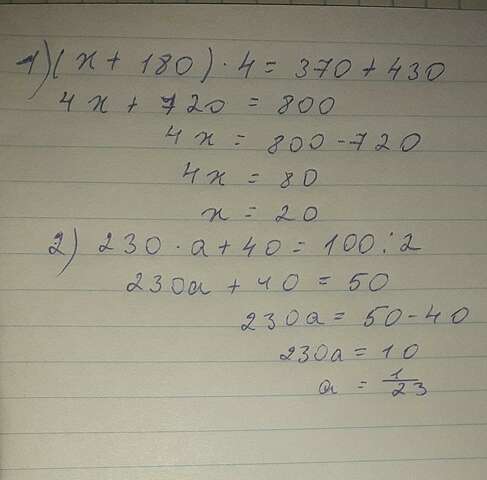 1) (x + 180) · 4 = 370 + 430
4x + 720 = 800
4x = 800 - 720
4x = 80
x = 20
2) 230 · a + 40 = 100 : 2
230a + 40 = 50
230a = 50 - 40
230a = 10
a = 1/23